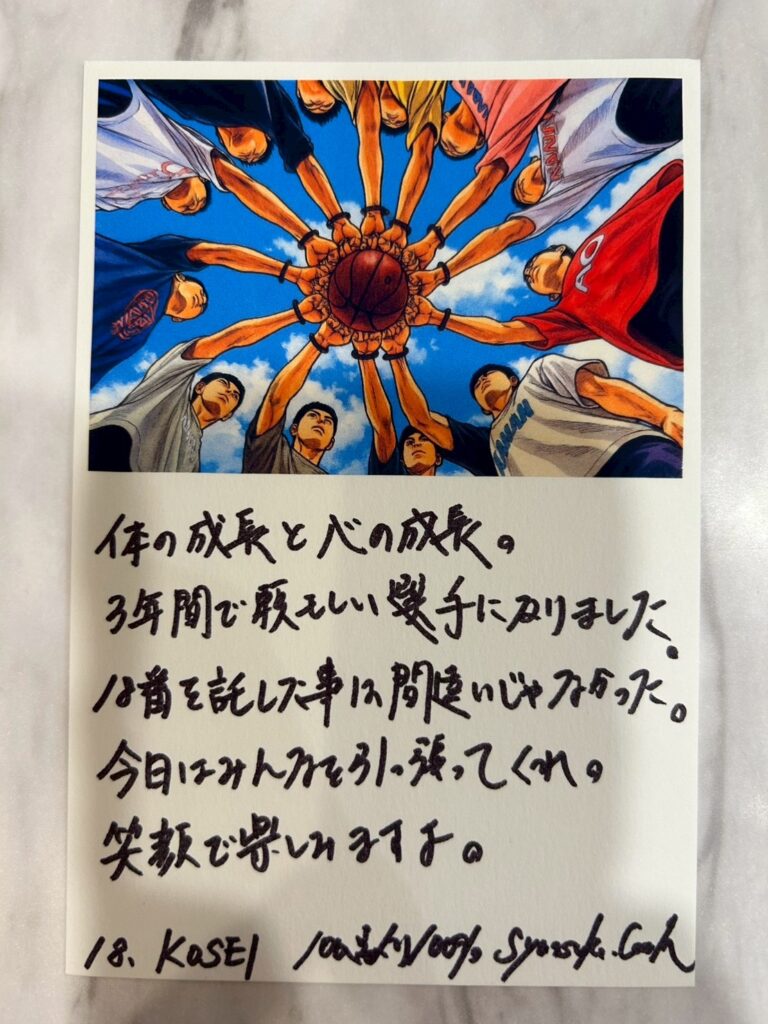 体の成長と心の成長。
3年間で頼もしい選手になりました。
18番を託した事は間違いじゃなかった。
今日はみんなを引っ張ってくれ。
笑顔で楽しみますよ。
18. KOSEI 100%